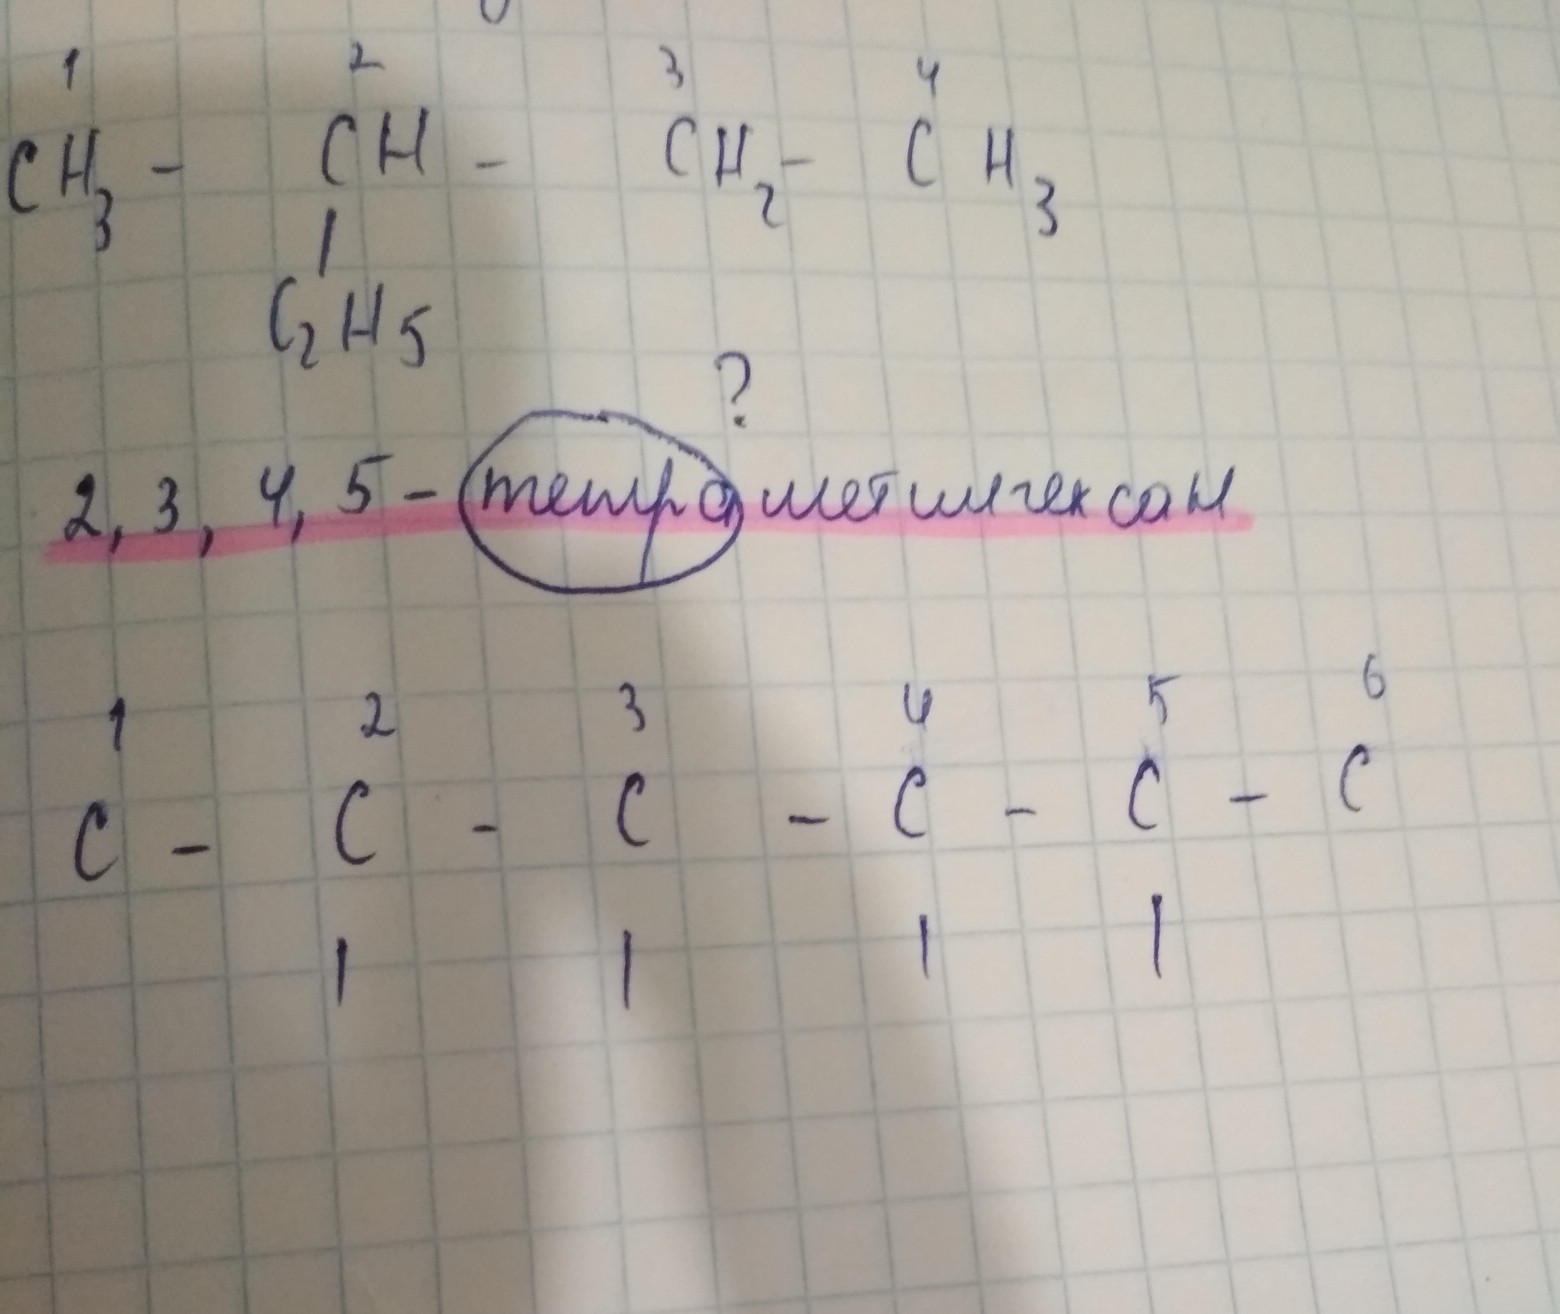 1 2 3 4
CH3 - CH - CH2 - CH3
|
C2H5
?
2, 3, 4, 5 - тетраметилгексан
1 2 3 4 5 6
C - C - C - C - C - C
| | | |